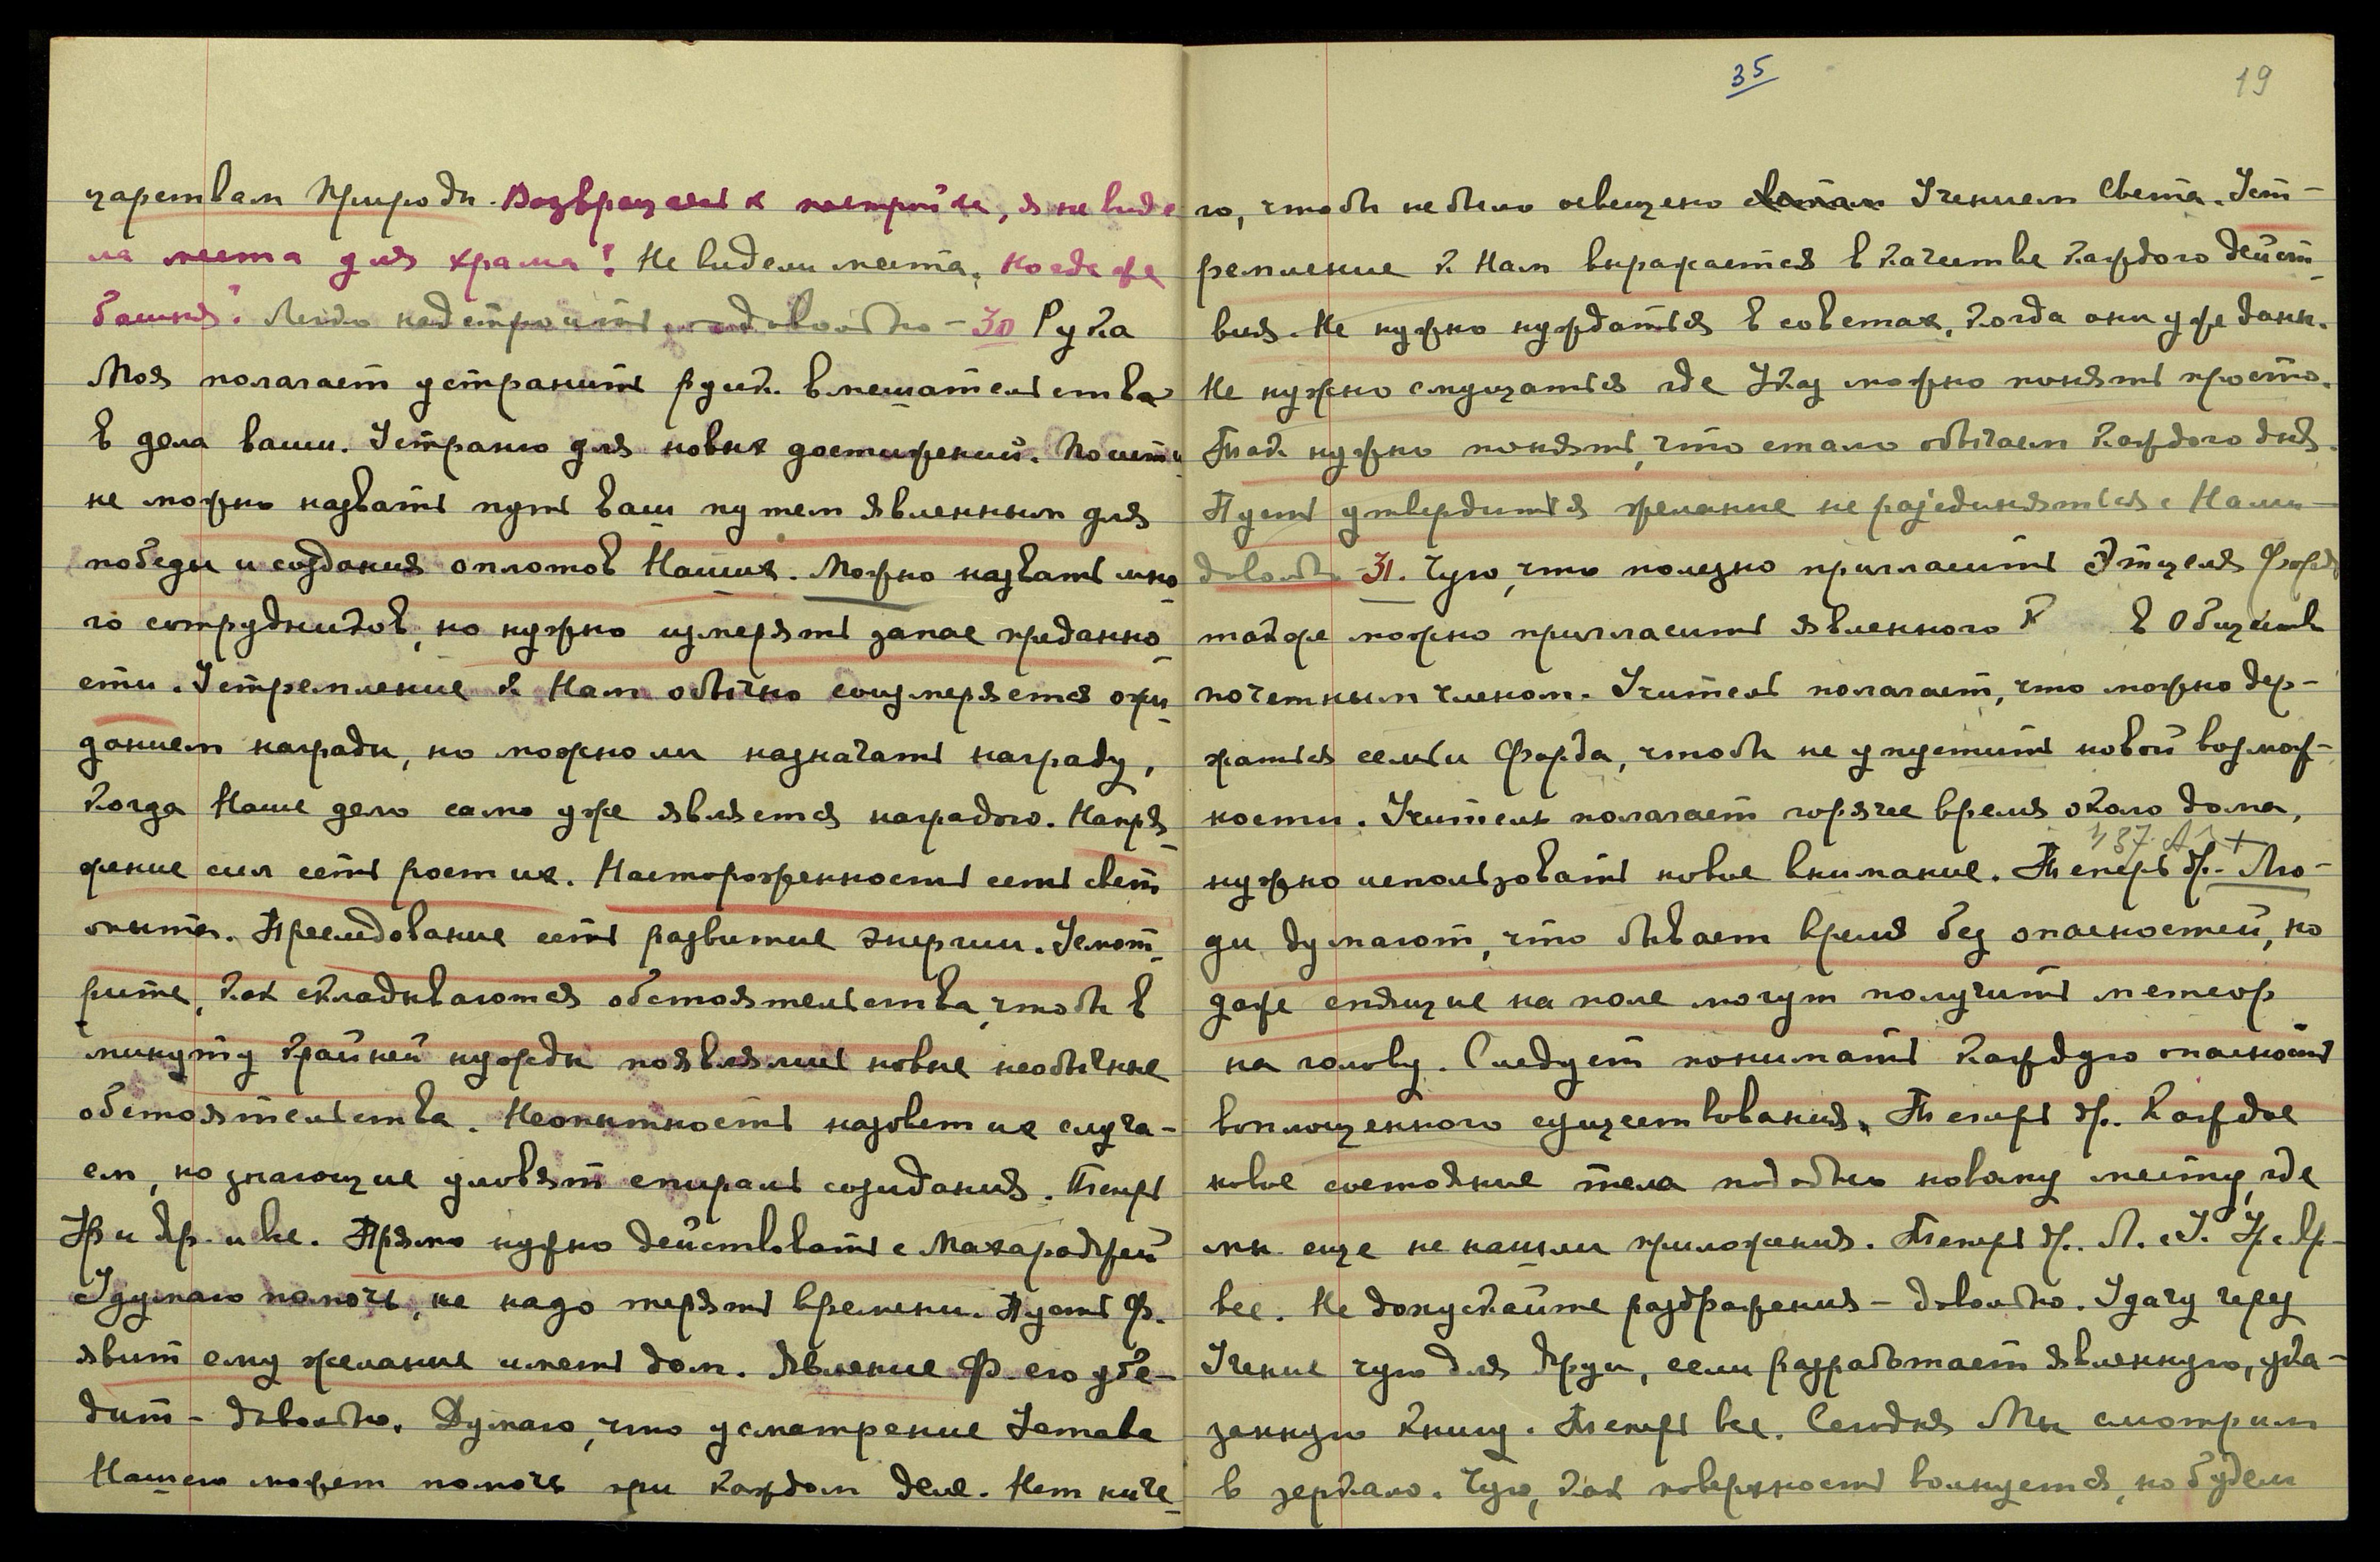 царствам Природы. Возвращаясь к постройке, я не виде
ла места для храма? Не видели места. Но где же
башня? Легко надстроить – довольно – 30 Рука
Моя полагает устранить руск. вмешательства
в дела ваши. Устраню для новых достижений. Поисти
не можно назвать путь ваш путем явленным для
победы и создания оплотов Наших. Можно назвать мно
го сотрудников, но нужно измерять запас преданно
сти. Устремление к Нам обычно соизмеряется ожи
данием награды, но можно ли назначать награду,
когда Наше дело само уже является наградою. Напря
жение сил есть рост их. Настороженность есть свет
опыта. Преследование есть развитие энергии. Усмот
рите, как складываются обстоятельства, чтобы в
минуту крайней нужды появлялись новые необычные
обстоятельства. Неопытность назовет их случа-
ем, но знающие уловят спираль созидания. Теперь
др. и все. Прямо нужно действовать с Махараджей
Я думаю помочь, не надо терять времени. Пусть Ф.
явит ему желание иметь дом. Явление Ф. его убе-
дит – довольно. Думаю, что усмотрение Устава
Нашего может помочь при каждом деле. Нет ниче
35
19
го, чтобы не было освещено Учением Света. Уст-
ремление к Нам выражается в качестве каждого дейст
вия. Не нужно нуждаться в советах, когда они уже даны.
Не нужно смущаться где Указ можно понять просто.
Так нужно понять, что стало обычаем каждого дня.
Пусть утвердится желание не разъединяться с Нами –
довольно – 31. Чую, что полезно пригласить Этцеля Форда
также можно пригласить явленного К в Общество
почетным членом. Учитель полагает, что можно дер-
жаться семьи Форда, чтобы не упустить новой возмож-
ности. Учитель полагает горячее время около дома,
нужно использовать новое внимание. Теперь др. – Лю-
ди думают, что бывает время без опасностей, но
даже спящие на поле могут получить метеор
на голову. Следует понимать каждую опасность
воплощенного существования. Теперь др. Каждое
новое состояние тела подобно новому месту, где
мы еще не нашли приложения. Теперь др. Л. с У.
все. Не допускайте раздражения – довольно. Удачу через
Учение чую для Друзи, если разработает явленную, ука-
занную книгу. Теперь все. Сегодня Мы смотрим
в зеркало. Чую, как поверхность волнуется, но будем